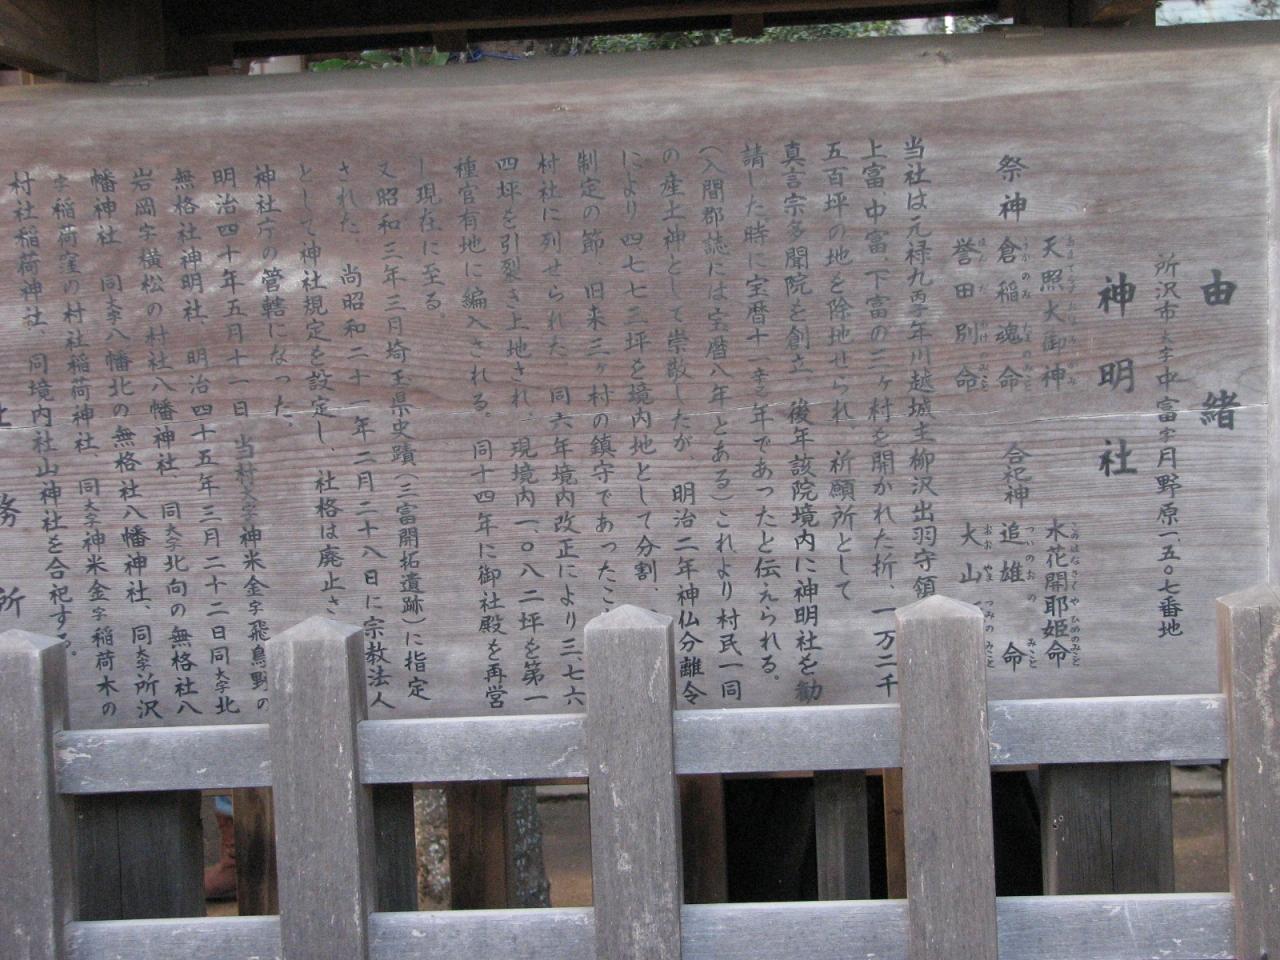 由緒
神明社
所沢市大字中富字月野原一、五〇七番地
祭神
天照大御神
あまてらすおおみかみ
倉稲魂命
うかのみたまのみこと
誉田別命
ほんだわけのみこと
合祀神
木花開耶姫命
このはなさくやひめのみこと
追雄命
ついのおのみこと
大山
おおやまつみのみこと
当社は元禄九丙子年川越城主柳沢出羽守領
上富、中富、下富の三ヶ村を開かれた折、一万二千
五百坪の地を除地せられ、祈願所として
真言宗多聞院を創立、後年該院境内に神明社を勧
請した、時に宝暦十一辛巳年であったと伝えられる。
(入間郡誌には宝暦八年とある)これより村民一同
の産土神として崇敬したが、明治二年神仏分離令
により四七七三坪を境内地として分割、
制定の節、旧来三ヶ村の鎮守であったこ
村社に列せられた、同六年境内改正により三、七六
四坪を引裂き上地され、現境内一、〇八二坪を第一
種官有地に編入される。同十四年に御社殿を再営
し現在に至る。
又昭和三年三月埼玉県史蹟(三富開拓遺跡)に指定
された、尚昭和二十一年二月二十八日に宗教法人
として神社規定を設定し、社格は廃止さ
神社庁の管轄になった、
明治四十年五月十一日 当村大字神米金字飛鳥野の
無格社神明社、明治四十五年三月二十二日同大字北
岩岡字横松の村社八幡神社、同大字北向の無格社八
幡神社 同大字八幡北の無格社八幡神社、同大字所沢
字稲荷窪の村社稲荷神社 同大字神米金字稲荷木の
村社稲荷神社、同境内社山神社を合祀する。
社務所